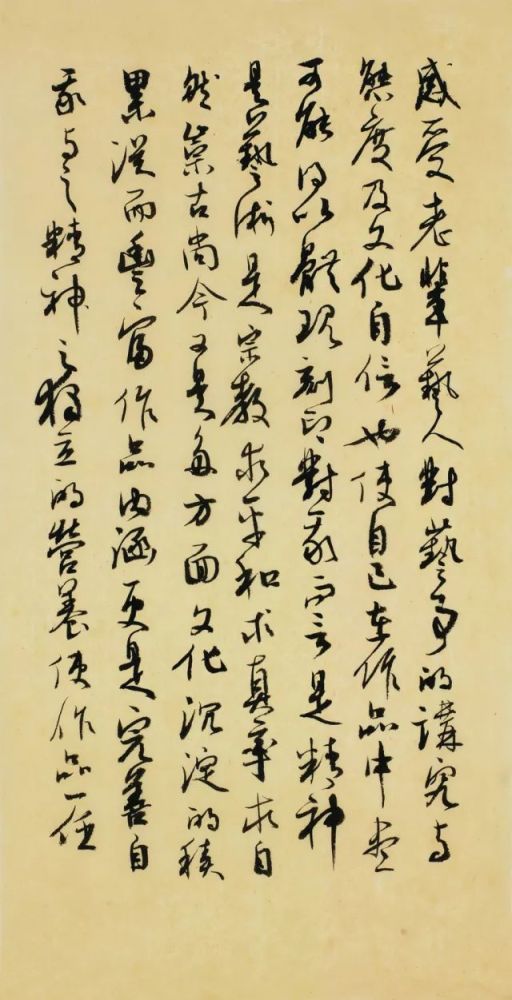 感受老辈藝人對藝事的講究与
態度及文化自信也使自己在作品中盡
可能得以體現刻印對我而言是精神
是藝術是宗教求平和求真率求自
然崇古尚今又是多方面文化沉淀的積
累從而豐富作品内涵更是完善自
我与之精神之獨立的營養使作品一任